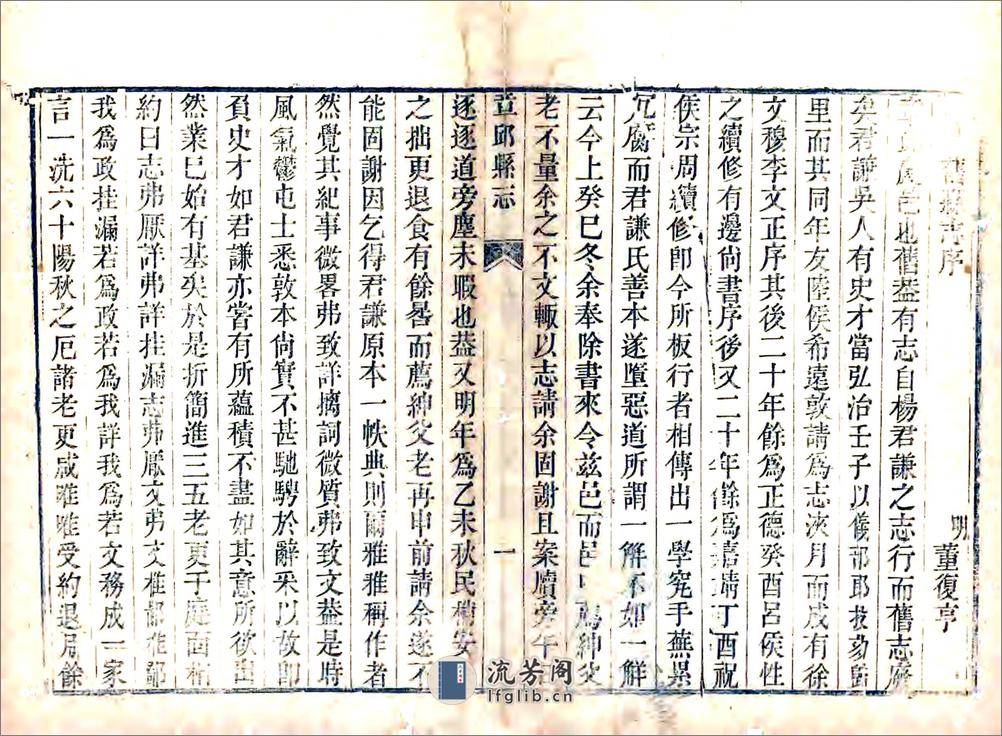 舊縣志序
明 董復亨
邑也舊蓋有志自楊君謙之志行而舊志廢
矣君謙吳人有史才當弘治壬子以儀部郎投劾
里而其同年友陸侯希遠敦請為志浹月而成有徐
文穆李文正序其後二十年餘為正德癸酉呂侯性
之續修有邊尚書序後又二十年餘為嘉靖丁酉祝
侯宗周續修即今所板行者相傳出一學究手蕪累
冗腐而君謙氏善本遂墮惡道所謂一解不如一解
云今上癸巳冬余奉除書來令茲邑而邑中薦紳父
老不量余之不文輙以志請余固謝且案牘旁午
章邱縣志
一
逐逐道旁塵未暇也蓋又明年為乙未秋民稍安
之拙更退食有餘晷而薦紳父老再申前請余遂不
能固謝因乞得君謙原本一帙典則爾雅雅稱作者
然覺其紀事微畧弗致詳摛詞微質弗致文蓋是時
風氣鬱屯士悉敦本尚實不甚馳騁於辭采以故即
負史才如君謙亦嘗有所蘊積不盡如其意所欲出
然業已始有基矣於是折簡進三五老更于庭面相
約曰志弗厭詳弗詳挂漏志弗厭文弗文椎鄙椎鄙
我為政挂漏若為政若為我詳我為若文務成一家
言一洗六十陽秋之厄諸老更咸唯唯受約退居餘
流芳阁
lfglib.cn